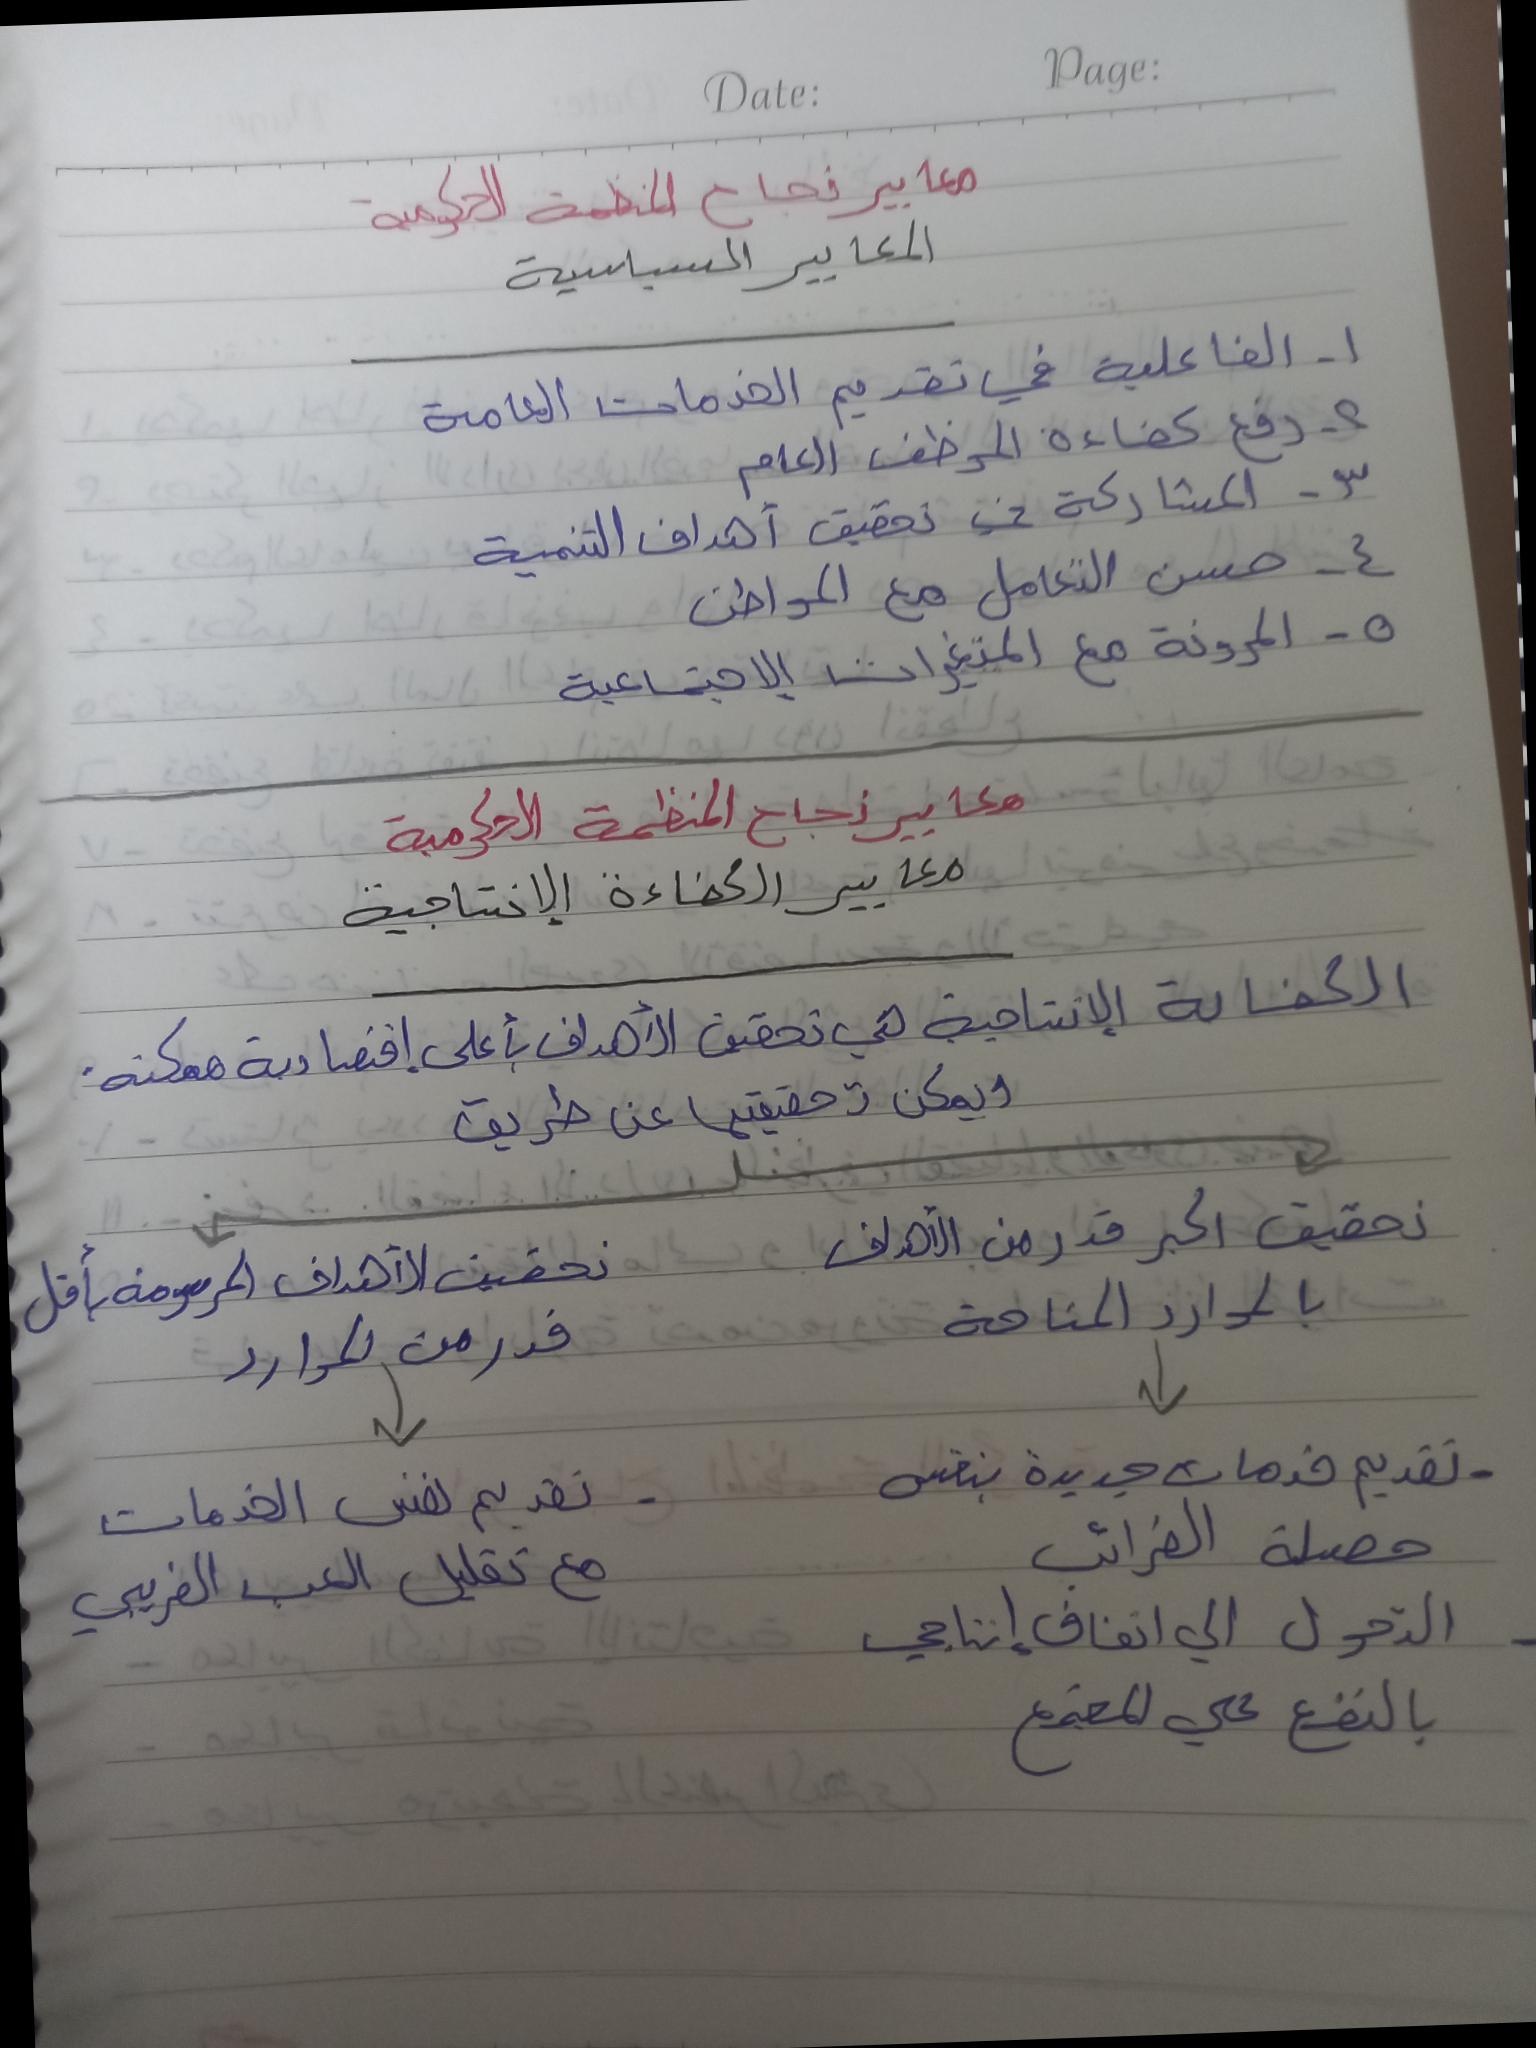 Date: Page:
معايير نجاح المنظمة الحكومية
المعايير السياسية
١- الفاعلية في تقديم الخدمات العامة
٢- رفع كفاءة الموظف العام
٣- المشاركة في تحقيق أهداف التنمية
٤- حسن التعامل مع المواطن
٥- المرونة مع المتغيرات الإجتماعية
معايير نجاح المنظمة الحكومية
معايير الكفاءة الإنتاجية
الكفاية الإنتاجية هي تحقيق الأهداف بأعلى إقتصادية ممكنة.
ويمكن تحقيقها عن طريق
تحقيق اكبر قدر من الأهداف
بالموارد المتاحة
- تقديم خدمات جديدة بنفس
حصيلة الضرائب
- التحول الي انفاق إنتاجي
بالنفع علي المجتمع
تحقيق الأهداف المرسومة بأقل
قدر من الموارد
- تقديم نفس الخدمات
مع تقليل العبء الضريبي